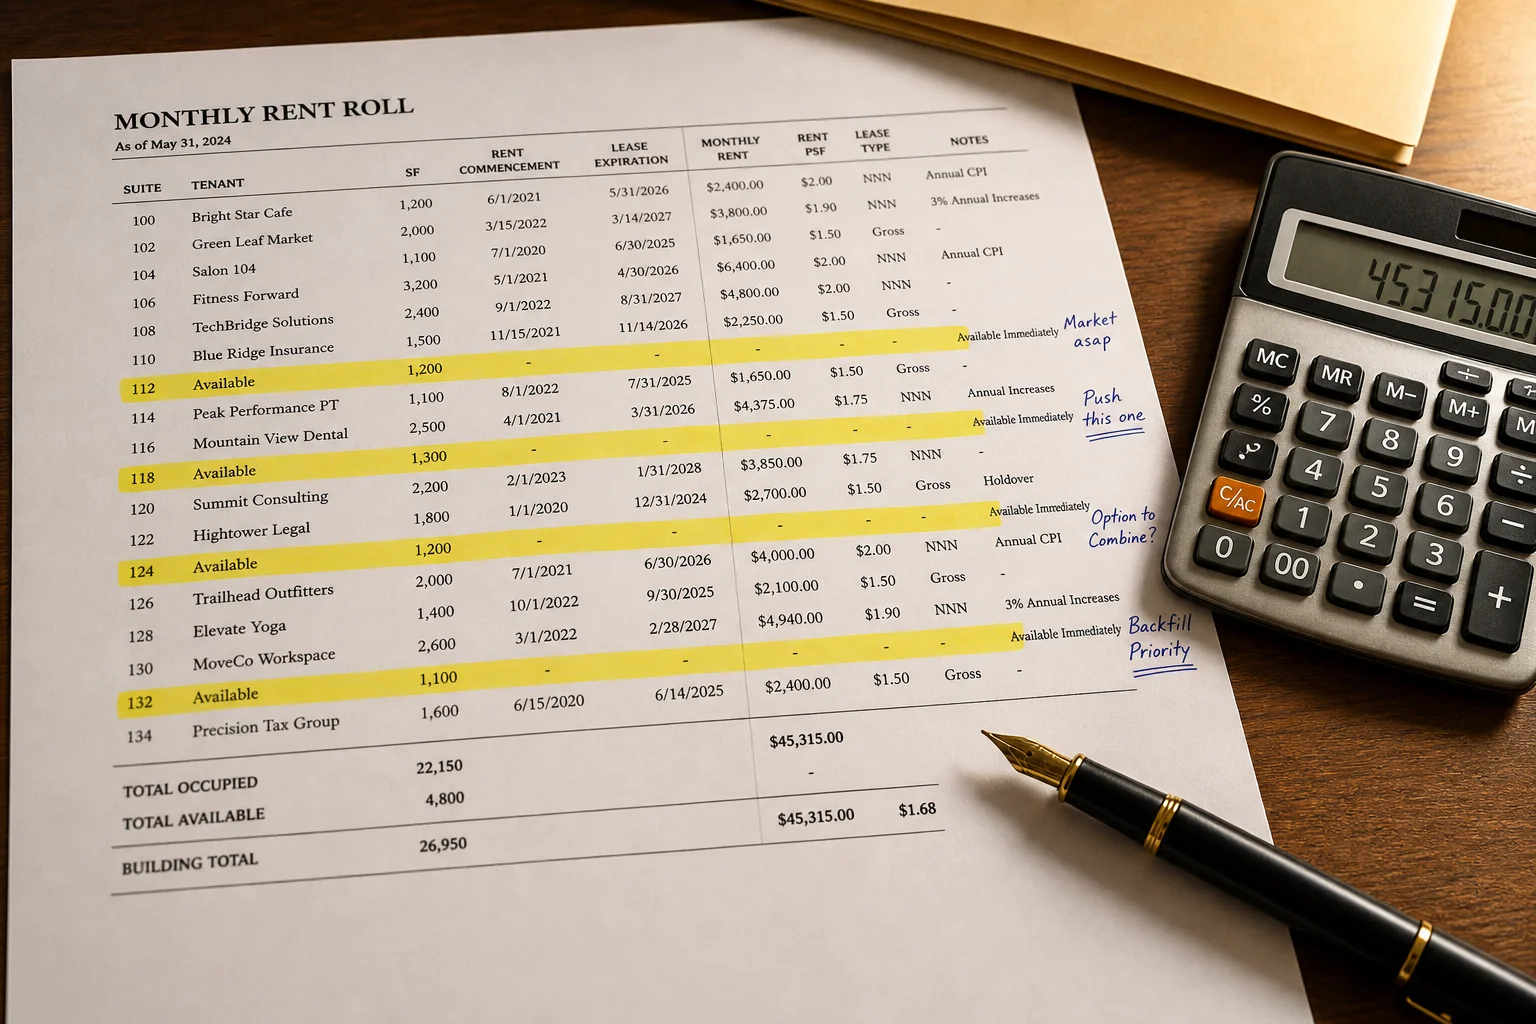 MONTHLY RENT ROLL
As of May 31, 2024
SUITE TENANT SF RENT COMMENCEMENT LEASE EXPIRATION MONTHLY RENT RENT PSF LEASE TYPE NOTES
100 Bright Star Cafe 1,200 6/1/2021 5/31/2026 $2,400.00 $2.00 NNN Annual CPI
102 Green Leaf Market 2,000 3/15/2022 3/14/2027 $3,800.00 $1.90 NNN 3% Annual Increases
104 Salon 104 1,100 7/1/2020 6/30/2025 $1,650.00 $1.50 Gross -
106 Fitness Forward 3,200 5/1/2021 4/30/2026 $6,400.00 $2.00 NNN Annual CPI
108 TechBridge Solutions 2,400 9/1/2022 8/31/2027 $4,800.00 $2.00 NNN -
110 Blue Ridge Insurance 1,500 11/15/2021 11/14/2026 $2,250.00 $1.50 Gross -
112 Available 1,200 - - - - - Available Immediately Market asap
114 Peak Performance PT 1,100 8/1/2022 7/31/2025 $1,650.00 $1.50 Gross -
116 Mountain View Dental 2,500 4/1/2021 3/31/2026 $4,375.00 $1.75 NNN Annual Increases
118 Available 1,300 - - - - - Available Immediately Push this one
120 Summit Consulting 2,200 2/1/2023 1/31/2028 $3,850.00 $1.75 NNN -
122 Hightower Legal 1,800 1/1/2020 12/31/2024 $2,700.00 $1.50 Gross Holdover
124 Available 1,200 - - - - - Available Immediately Option to Combine?
126 Trailhead Outfitters 2,000 7/1/2021 6/30/2026 $4,000.00 $2.00 NNN Annual CPI
128 Elevate Yoga 1,400 10/1/2022 9/30/2025 $2,100.00 $1.50 Gross -
130 MoveCo Workspace 2,600 3/1/2022 2/28/2027 $4,940.00 $1.90 NNN 3% Annual Increases
132 Available 1,100 - - - - - Available Immediately Backfill Priority
134 Precision Tax Group 1,600 6/15/2020 6/14/2025 $2,400.00 $1.50 Gross -
TOTAL OCCUPIED 22,150 $45,315.00
TOTAL AVAILABLE 4,800 -
BUILDING TOTAL 26,950 $45,315.00 $1.68
45315.00
MC MR M- ÷
% 7 8 M+ M
4 5 9 ÷
C/AC 1 2 6 −
0 00 • 3 = +